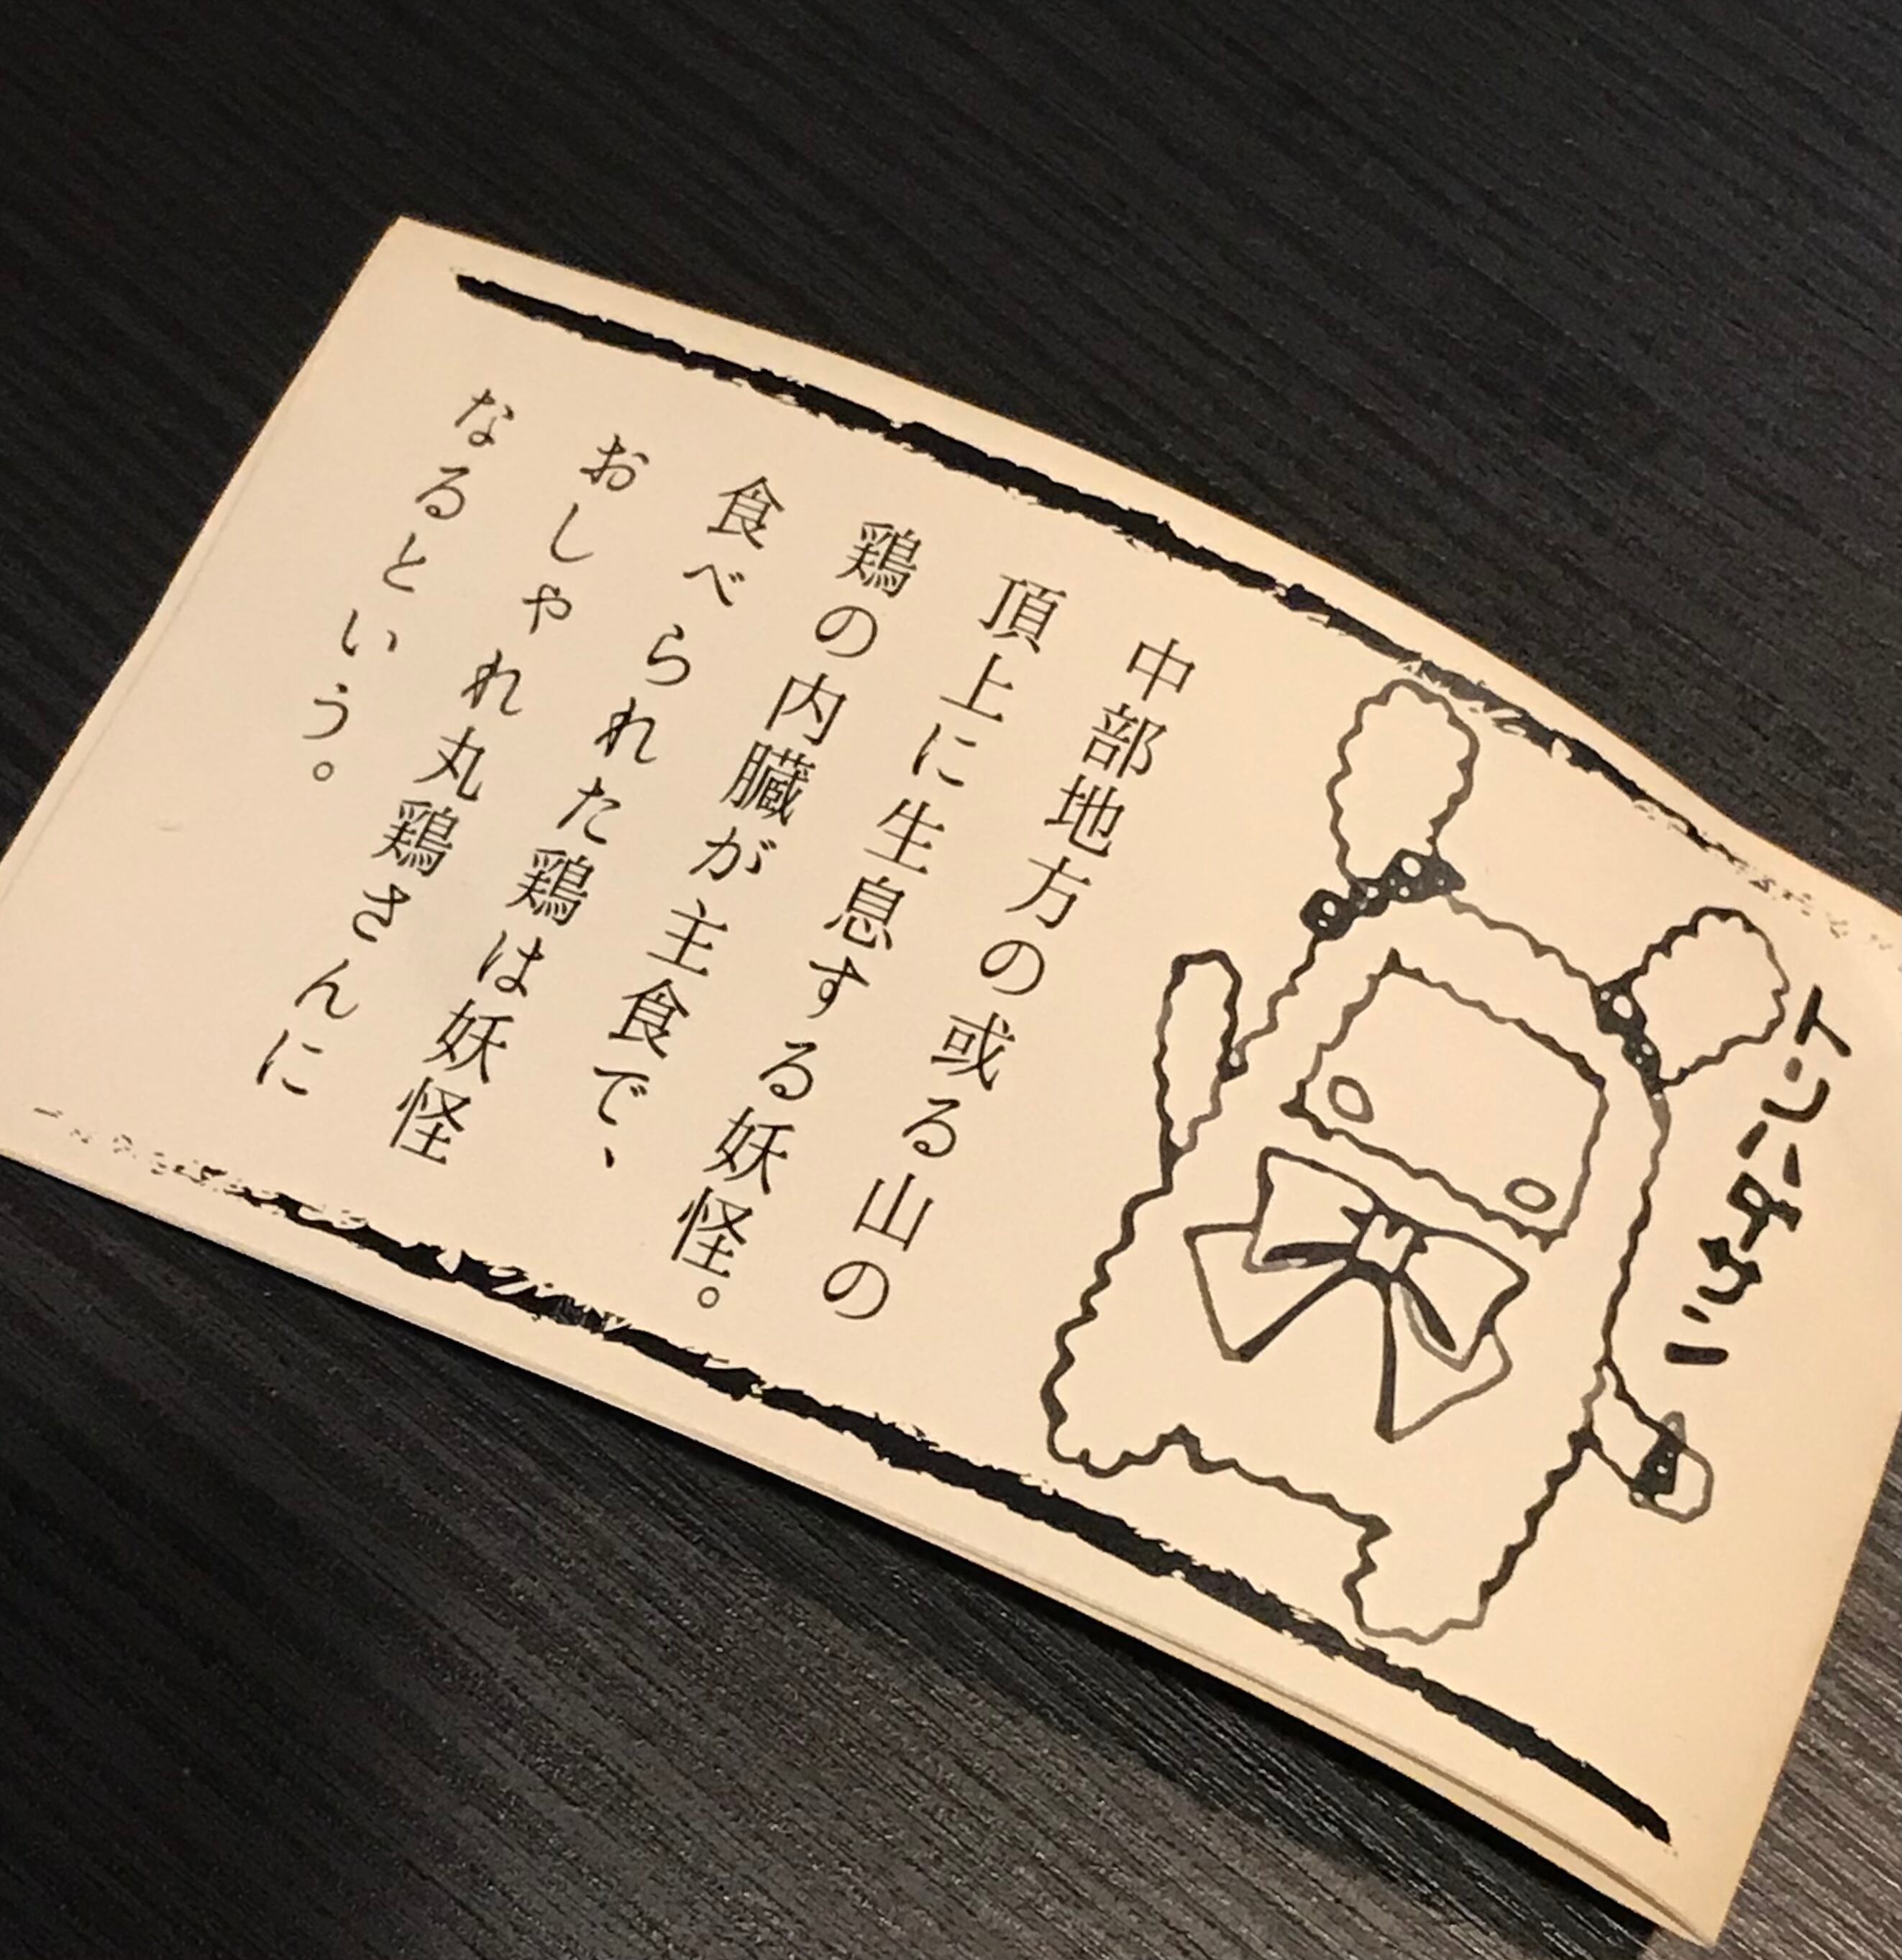 中部地方の或る山の
頂上に生息する妖怪。
鶏の内臓が主食で、
食べられた鶏は妖怪
おしゃれ丸鶏さんに
なるという。